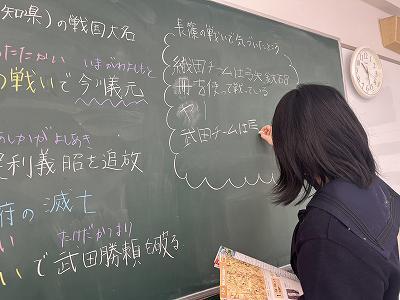 知県)の戦国大名
たたかい
いまがわよしもと
の戦いで 今川義元
あしかがよしあき
足利義昭を追放
府の滅亡
い
たけだかつより
いで 武田勝頼を破る
長篠の戦いで気づいたところ
織田チームは
を使って戦っている
武田チームは